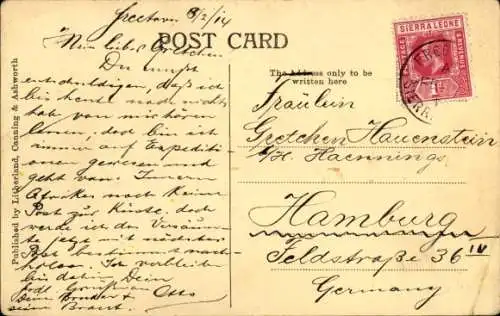 Freetown 8/2/14
Mein liebes Gretchen
Du musst
entschuldigen, daß ich
bis heute noch nichts
hab von mir hören
lassen, doch bin ich
immer auf Expediti-
onen gewesen und
geht vom Innern
Afrikas noch keine
Post zur Küste, doch
werde ich das Versäum-
te jetzt mit nächster
Post bestimmt nach-
holen. Ich verbleibe
bis dahin Dein
Dein Bruder & Otto
seine Braut.
Published by Litherland, Canning & Ashworth
POST CARD
The Address only to be
written here
SIERRA LEONE
Fräulein
Gretchen Hauenstein
b/H. Haennings
Hamburg
Feldstraße 36 IV
Germany